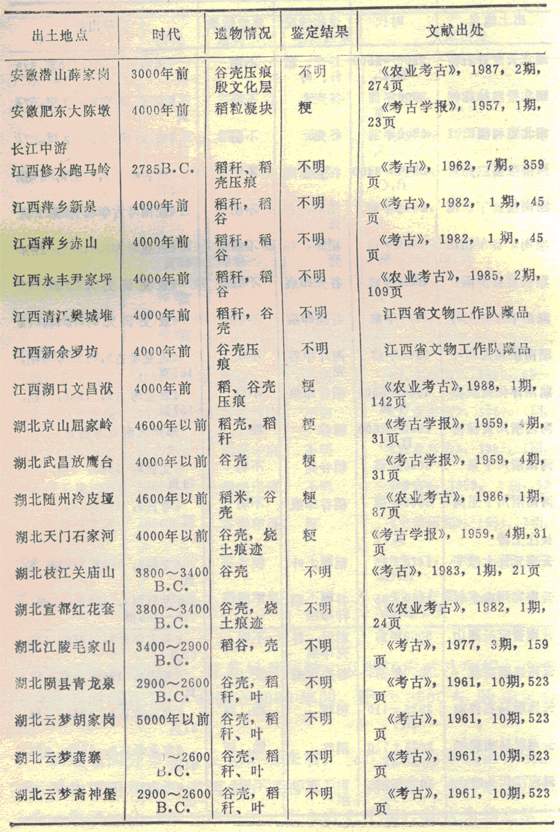 出土地点 时代 遗物情况 鉴定结果 文献出处
安徽潜山薛家岗 3000年前 谷壳压痕 不明 《农业考古》，1987，2期，
殷文化层 274页
安徽肥东大陈墩 4000年前 稻粒凝块 粳 《考古学报》，1957，1期，
23页
长江中游
江西修水跑马岭 2785B.C. 稻秆、稻 不明 《考古》，1962，7期，359
壳压痕 页
江西萍乡新泉 4000年前 稻秆，稻 不明 《考古》，1982，1期，45
谷 页
江西萍乡赤山 4000年前 稻秆，稻 不明 《考古》，1982，1期，45
谷 页
江西永丰尹家坪 4000年前 稻秆，稻 不明 《农业考古》，1985，2期，
谷 109页
江西清江樊城堆 4000年前 稻秆，谷 不明 江西省文物工作队藏品
壳
江西新余罗坊 4000年前 谷壳压 不明 江西省文物工作队藏品
痕
江西湖口文昌洑 4000年前 稻、谷壳 粳 《农业考古》，1988，1期，
压痕 142页
湖北京山屈家岭 4600年以前 稻壳，稻 粳 《考古学报》，1959，4期，
秆 31页
湖北武昌放鹰台 4000年以前 谷壳 粳 《考古学报》，1959，4期，
31页
湖北随州冷皮垭 4600年以前 稻米，谷 粳 《农业考古》，1986，1期，
壳 87页
湖北天门石家河 4000年以前 谷壳，烧 粳 《考古学报》，1959，4期，31
土痕迹 页
湖北枝江关庙山 3800～3400 谷壳 不明 《考古》，1983，1期，21页
B.C.
湖北宜都红花套 3800～3400 谷壳，烧 不明 《农业考古》，1982，1期，
B.C. 土痕迹 24页
湖北江陵毛家山 3400～2900 稻谷，壳 不明 《考古》，1977，3期，159
B.C. 页
湖北郧县青龙泉 2900～2600 谷壳，稻 不明 《考古》，1961，10期，523
B.C. 秆，叶 页
湖北云梦胡家岗 5000年以前 谷壳，稻 不明 《考古》，1961，10期，523
秆、叶 页
湖北云梦龚寨 ～2600 谷壳，稻 不明 《考古》，1961，10期，523
B.C. 秆、叶 页
湖北云梦斋神堡 2900～2600 谷壳，稻 不明 《考古》，1961，10期，523
B.C. 秆、叶 页